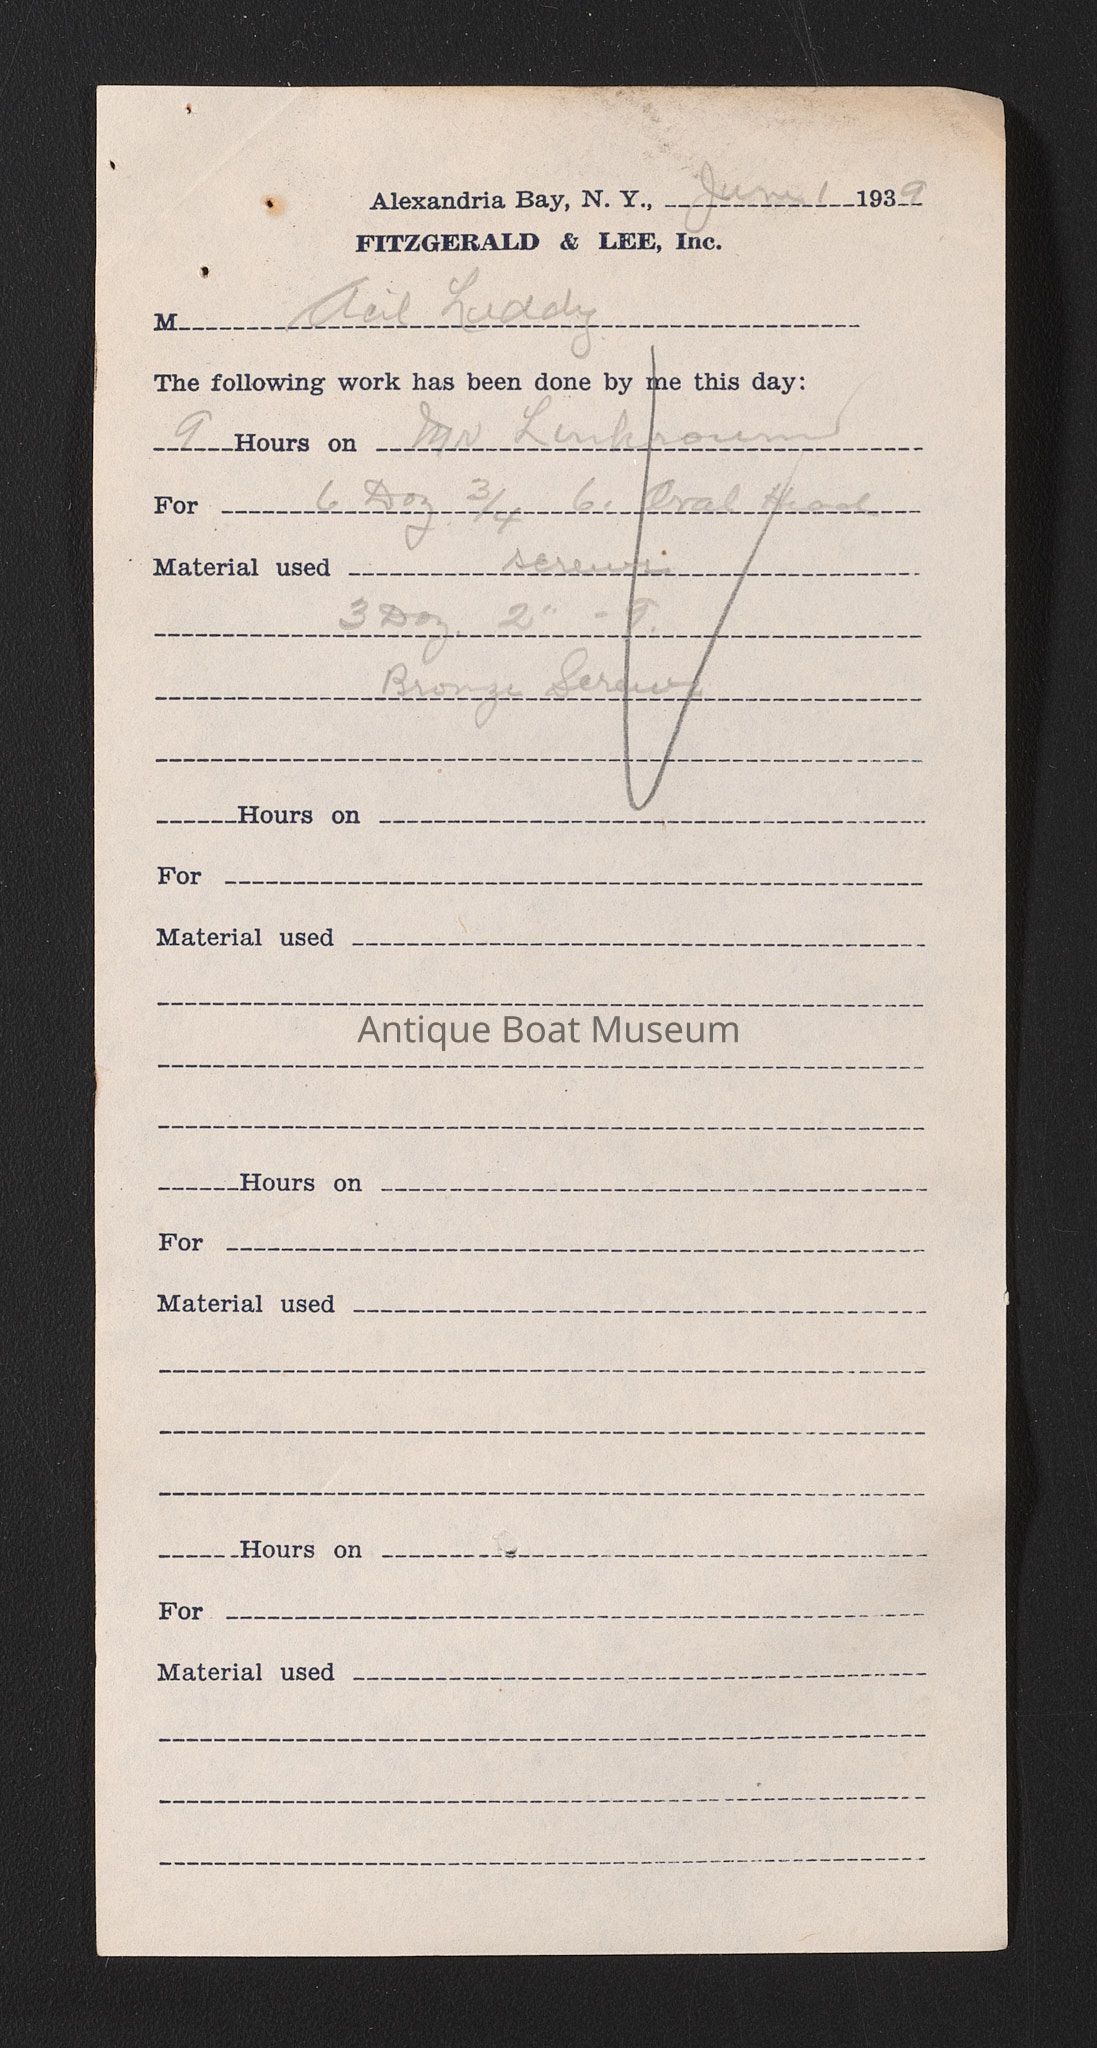 Alexandria Bay, N. Y., June 1 1939
FITZGERALD & LEE, Inc.
M Neil Luddy
The following work has been done by me this day:
9 Hours on Mr
For 6 Doz. 3/4 6. Oval Head
Material used screws
3 Doz. 2" - 9.
Bronze Screws
Hours on
For
Material used
Antique Boat Museum
Hours on
For
Material used
Hours on
For
Material used